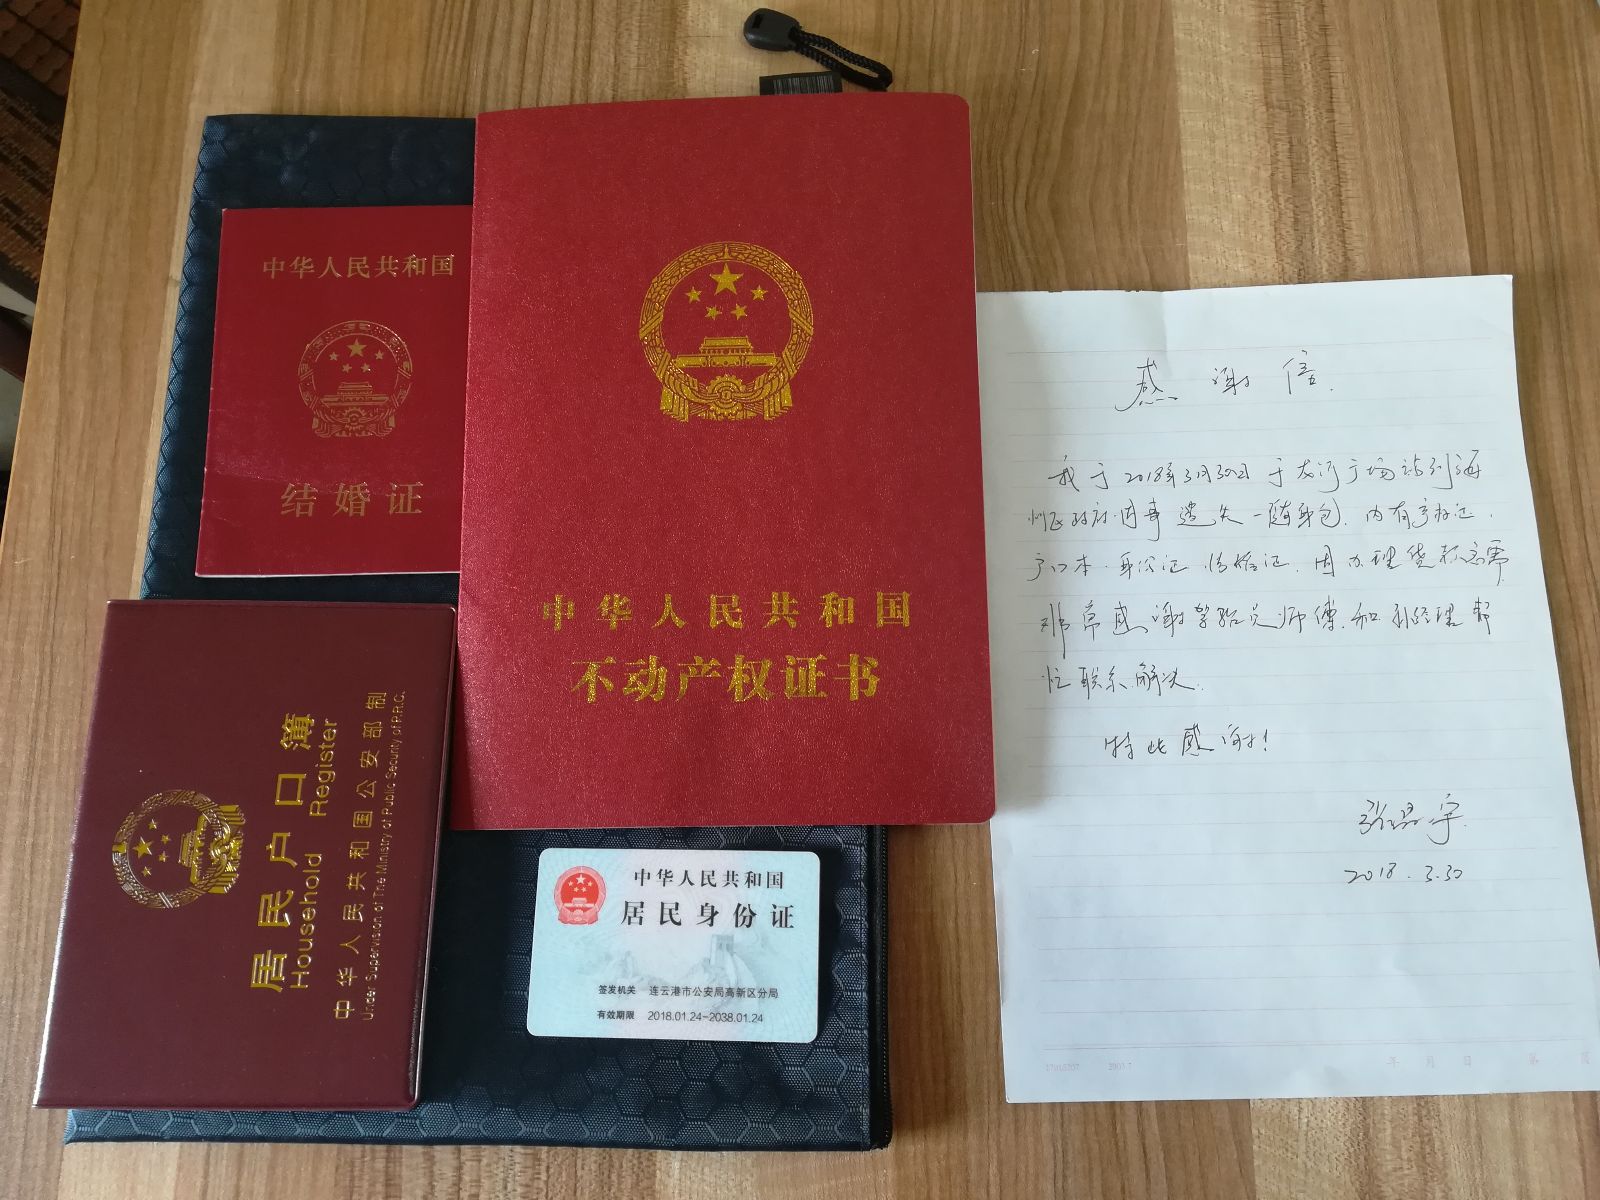 中华人民共和国
结婚证
中华人民共和国
不动产权证书
居民户口簿
Household Register
中华人民共和国公安部制
Under Supervision of The Ministry of Public Security of P.R.C.
中华人民共和国
居民身份证
签发机关 连云港市公安局高新区分局
有效期限 2018.01.24-2038.01.24
感谢信
我于2018年3月30日于龙河广场站到海
州区政府内哥遗失一随身包,内有房产证,
户口本、身份证、结婚证,因办理贷款急需
非常感谢驾驶员师傅和 经理帮
忙联系解决.
特此感谢!
2018.3.30
年 月 日 第 页